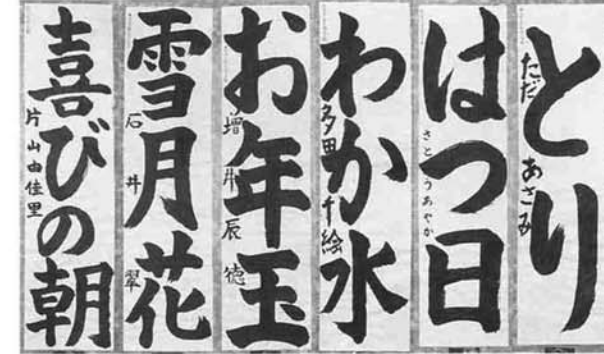 とり
ただあさみ
はつ日
さとうあやか
わか水
多田千絵
お年玉
増井辰徳
雪月花
石井翠
喜びの朝
片山由佳里